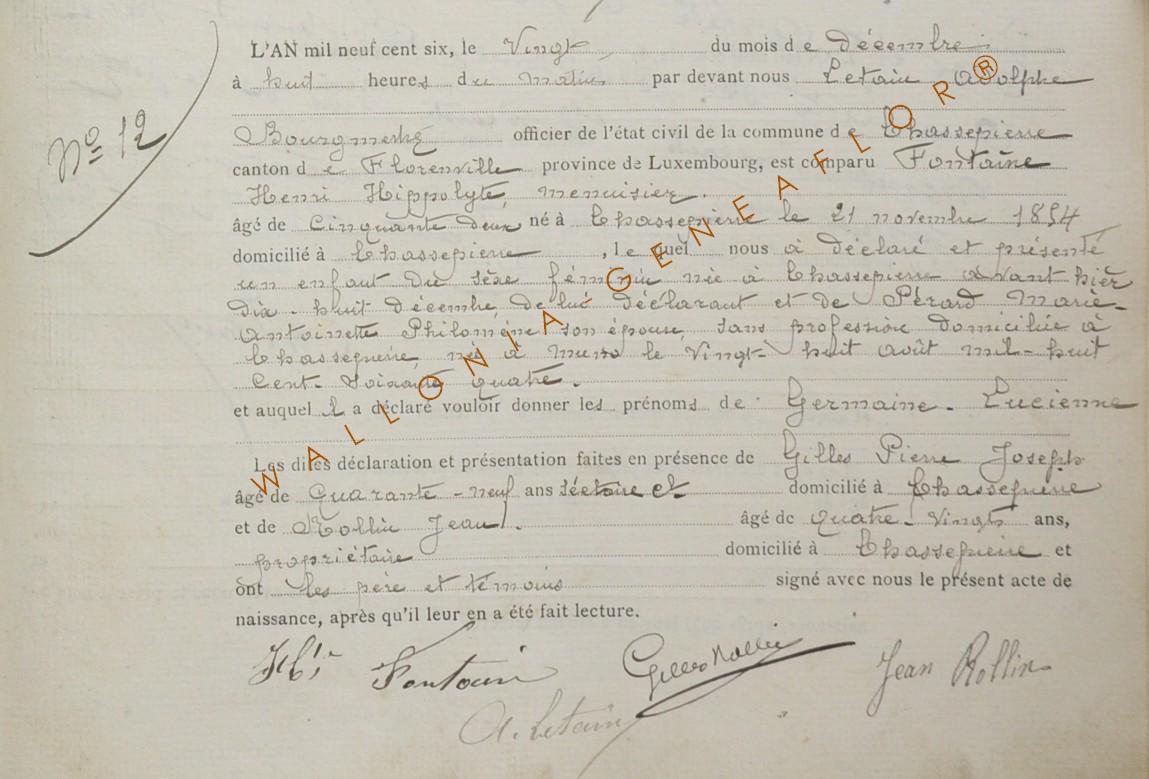 L'AN mil neuf cent six, le Vingt du mois de décembre
à huit heures du matin par devant nous Letain Adolphe
Bourgmestre officier de l'état civil de la commune de Chassepierre
Nº 12
canton de Florenville province de Luxembourg, est comparu Fontaine
Henri Hippolyte, menuisier.
âgé de Cinquante deux né à Chassepierre le 21 novembre 1854
domicilié à Chassepierre, lequel nous a déclaré et présenté
un enfant du sexe féminin née à Chassepierre avant hier
dix-huit décembre, de lui déclarant et de Pérard Marie-
Antoinette Philomène son épouse, sans profession domiciliée à
Chassepierre, née à Muno le Vingt-huit août mil-huit
Cent-Soixante quatre.
et auquel il a déclaré vouloir donner les prénoms de Germaine-Lucienne
Les dites déclaration et présentation faites en présence de Gilles Pierre Joseph
âgé de Quarante-neuf ans domicilié à Chassepierre
et de Rollin Jean. âgé de quatre-Vingts ans,
propriétaire domicilié à Chassepierre et
ont les père et témoins signé avec nous le présent acte de
naissance, après qu'il leur en a été fait lecture.
Fontaine Gilles Rollin Jean Rollin
A. Letain
WALLONIA GENEAFLOR®